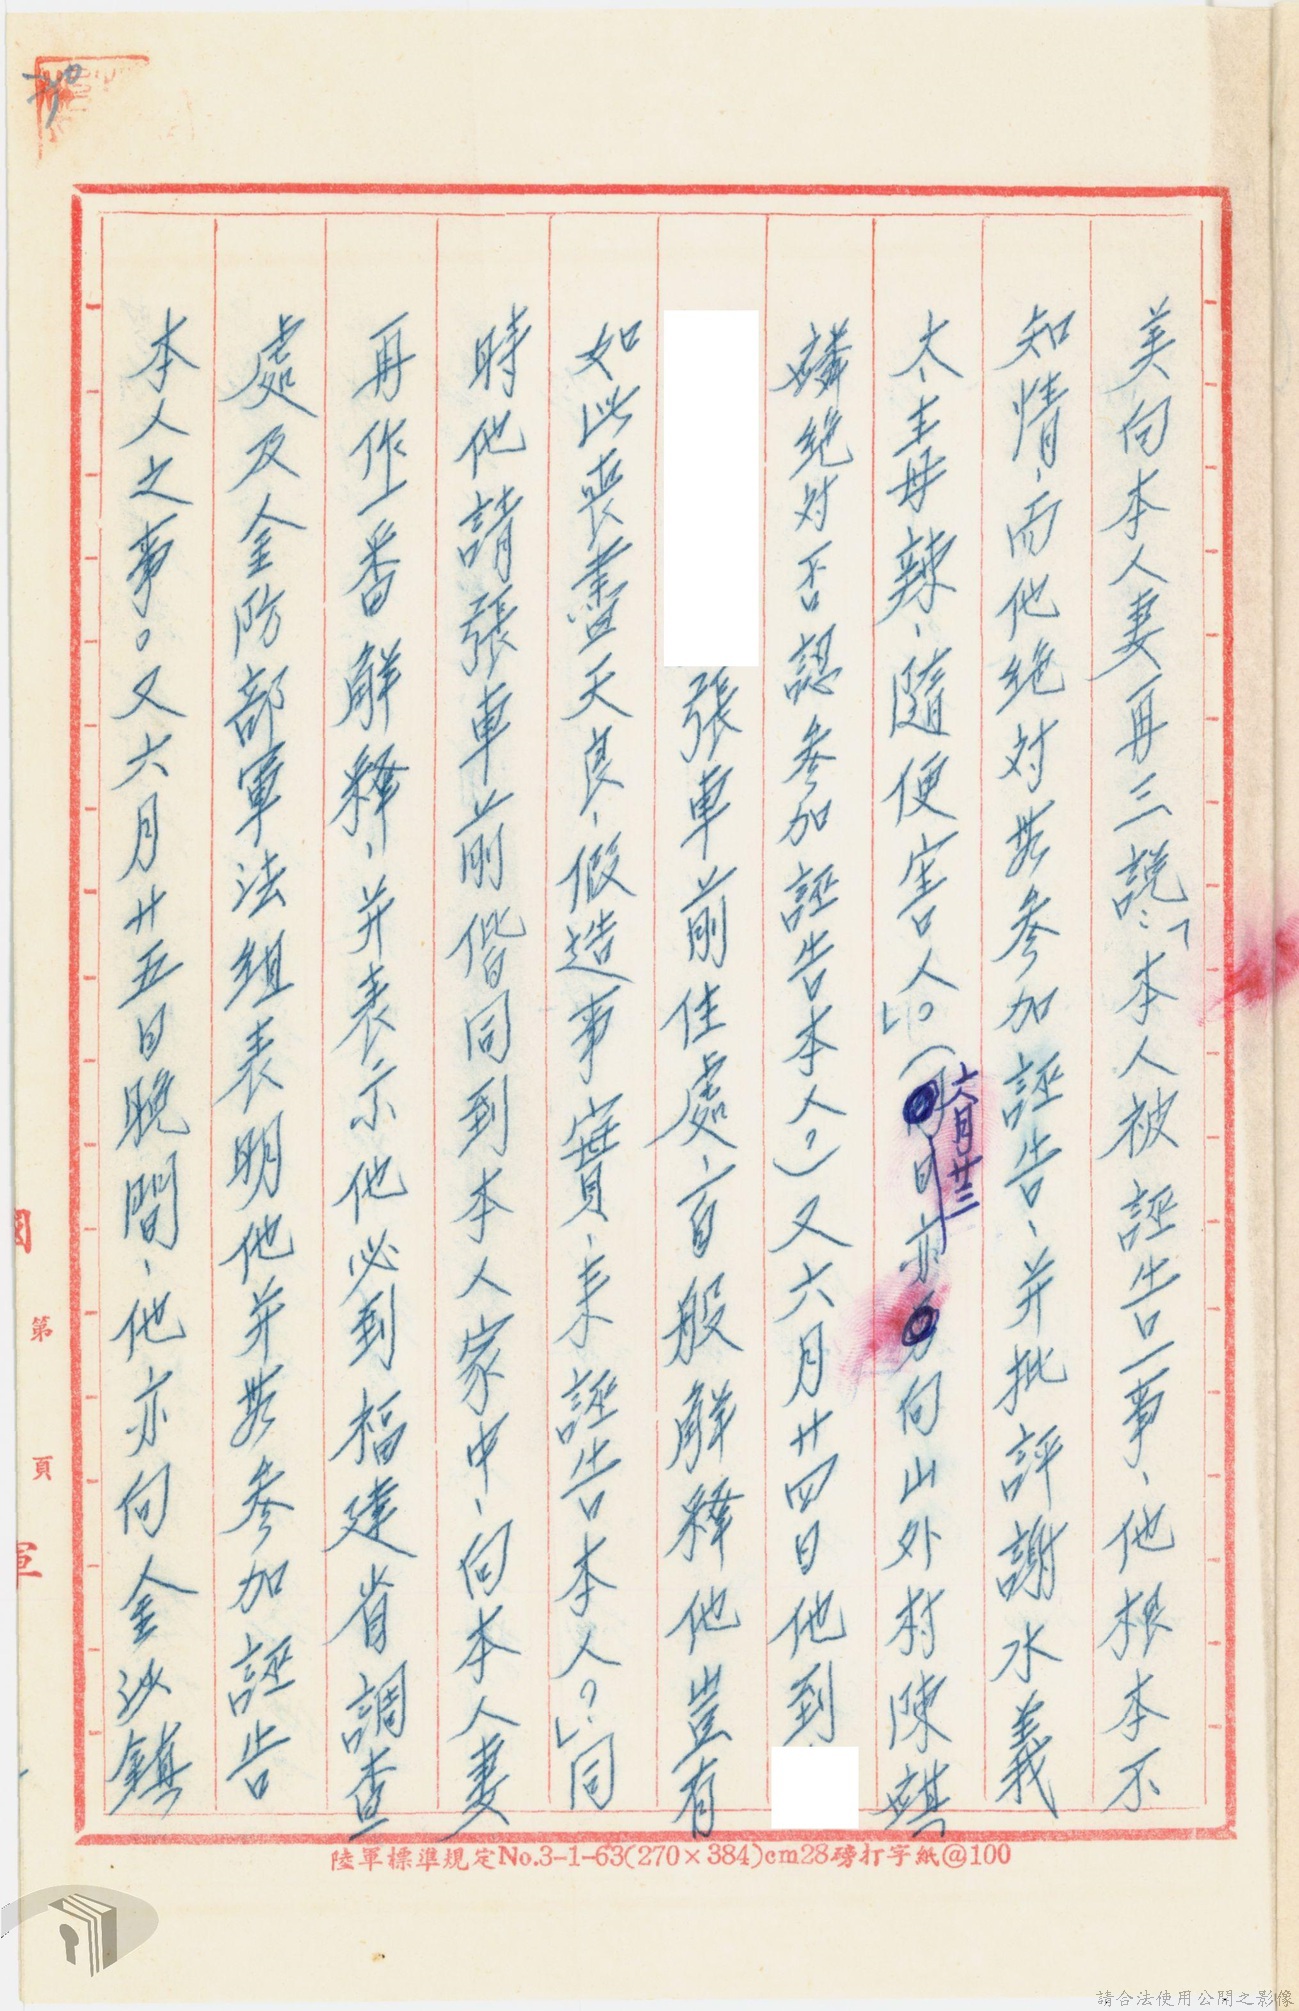 美向本人妻再三說:「本人被誣告一事、他根本不
知情、而他絕对無參加誣告、並批評謝水義
太、毒辣、隨便害人」。(六月廿三日亦向山外村陳
絕对否認參加誣告本人?)又六月廿四日他到
張車前住處、百般解釋他豈有
如此喪盡天良、假造事實、來誣告本人?」同
時他請張車前偕同到本人家中、向本人妻
再作一番解釋、并表示他必到福建省調查
處及金防部軍法組表明他并無參加誣告
本人之事。又六月廿五日晚間、他亦向金沙鎮
第 頁
陸軍標準規定No.3-1-63(270×384)cm28磅打字紙@100
請合法使用公開之影像